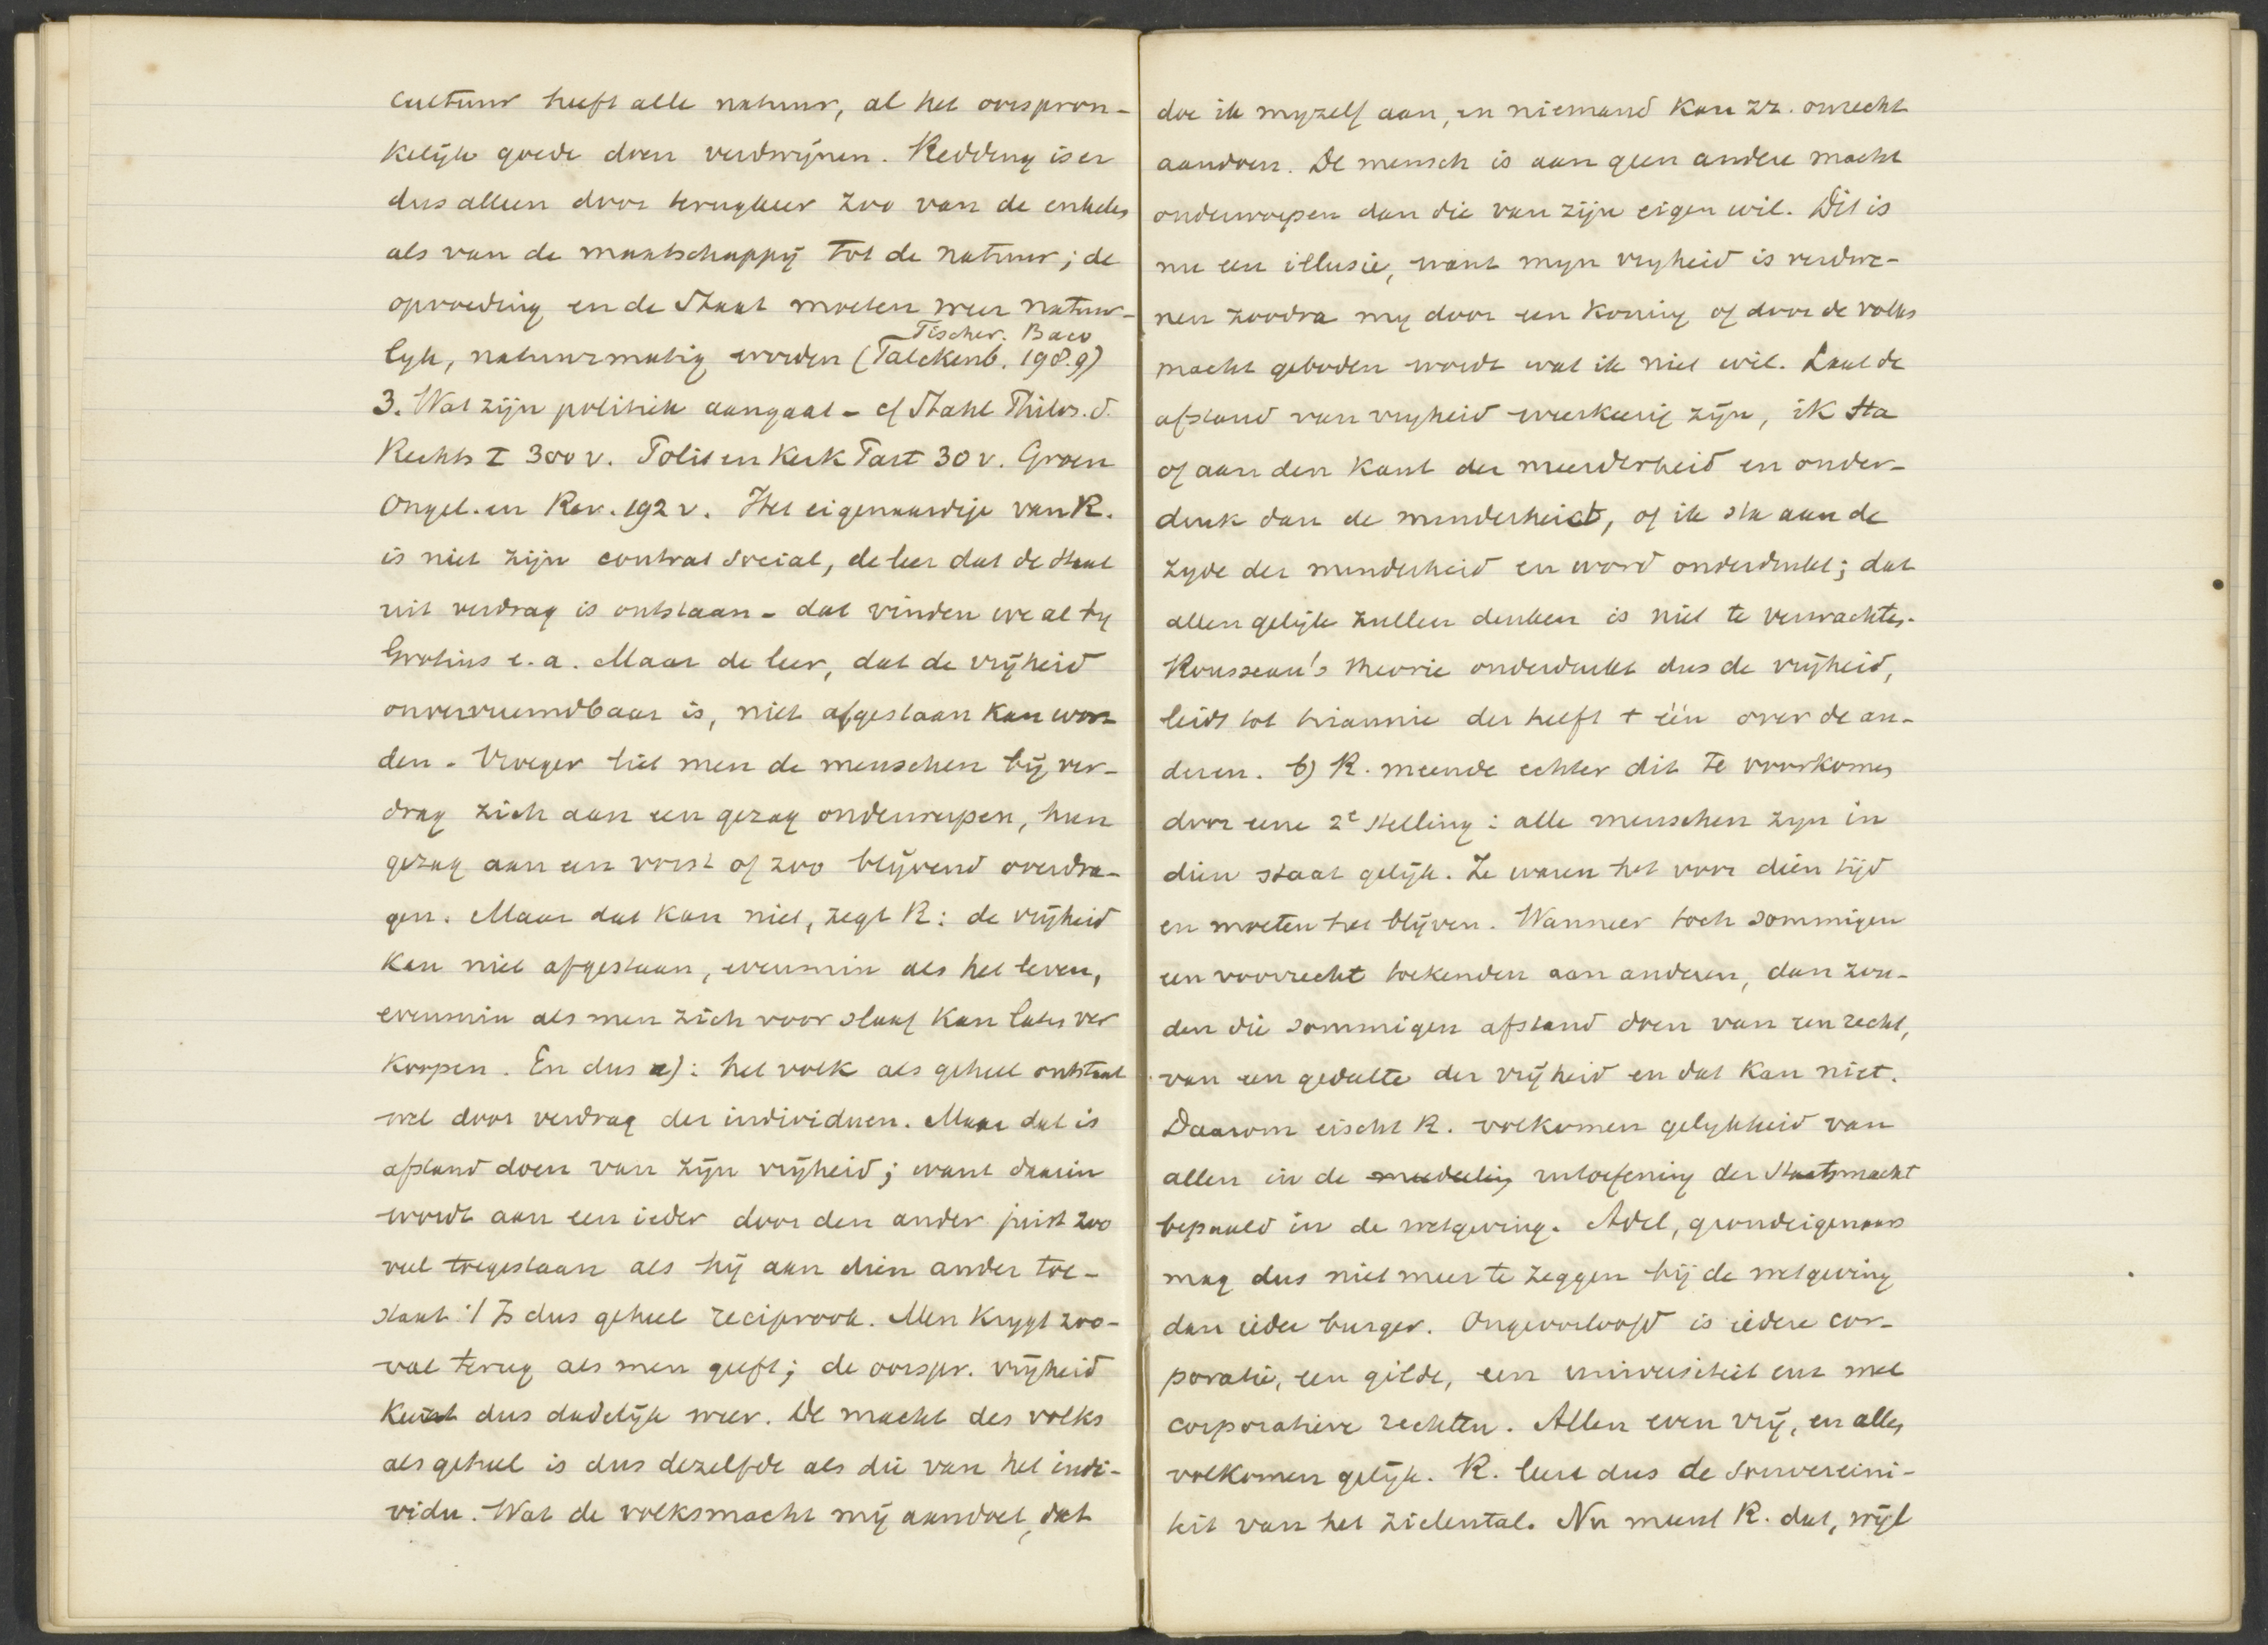 cultuur heeft alle natuur, al het oorspron-
kelijk goede doen verdwijnen. Redding is er
dus alleen door terugkeer zoo van de enkelen
als van de maatschappij tot de natuur; de
opvoeding en de Staat moeten weer natuur-
Fischer. Baco
lyk, natuurmatig worden (Falckenb. 198.9)
3. Wat zijn politiek aangaat - cf Stahl Philos. d.
Rechts I 300 v. Polit en Kerk Tast 30 v. Groen
Ongel. en Rev. 192 v. Het eigenaardige van R.
is niet zijn contrat social, de leer dat de staat
uit verdrag is ontstaan - dat vinden we al by
Grotius e.a. Maar de leer, dat de vrijheid
onvervreemdbaar is, niet afgestaan kan wor-
den. Vroeger liet men de menschen bij ver-
drag zich aan een gezag onderwerpen, hun
gezag aan een vorst of zoo blijvend overdra-
gen. Maar dat kan niet, zegt R: de vrijheid
kan niet afgestaan, evenmin als het leven,
evenmin als men zich voor slaaf kan laten ver
koopen. En dus a): het volk als geheel ontstaat
wel door verdrag der individuen. Maar dat is
afstand doen van zijn vrijheid; want daarin
wordt aan een ieder door den ander juist zoo
veel toegestaan als hij aan dien ander toe-
staat :/ Is dus geheel reciprook. Men krygt zoo-
val terug als men geeft; de oorspr. vrijheid
keert dus dadelijk weer. De macht des volks
als geheel is dus dezelfde als die van het indi-
vidu. Wat de volksmacht mij aandoet, dat
doe ik myzelf aan, en niemand kan zz. onrecht
aandoen. De mensch is aan geen andere macht
onderworpen dan die van zijn eigen wil. Dit is
nu een illusie, want myn vryheid is verdwe-
nen zoodra my door een koning of door de volks
macht geboden wordt wat ik niet wil. Laat de
afstand van vryheid weerkeerig zijn, ik sta
of aan den kant der meerderheid en onder-
druk dan de minderheid, of ik sta aan de
zyde der minderheid en word onderdrukt; dat
allen gelijk zullen denken is niet te verwachten.
Rousseau's theorie onderdrukt dus de vrijheid,
leidt tot tirannie der helft + één over de an-
deren. b) R. meende echter dit te voorkomen
door eene 2e stelling: alle menschen zyn in
dien staat gelijk. Ze waren het voor dien tijd
en moeten het blijven. Wanneer toch sommigen
een voorrecht toekenden aan anderen, dan zou-
den die sommigen afstand doen van een recht,
van een gedeelte der vrijheid en dat kan niet.
Daarom eischt R. volkomen gelykheid van
allen in de uitoefening der Staatsmacht
bepaald in de wetgeving. Adel, grondeigenaars
mag dus niet meer te zeggen bij de wetgeving
dan ieder burger. Ongeoorloofd is iedere cor-
poratie, een gilde, een universiteit enz met
corporatieve rechten. Allen even vrij, en allen
volkomen gelijk. R. leert dus de souvereini-
teit van het zielental. Nu meent R. dat, wijl